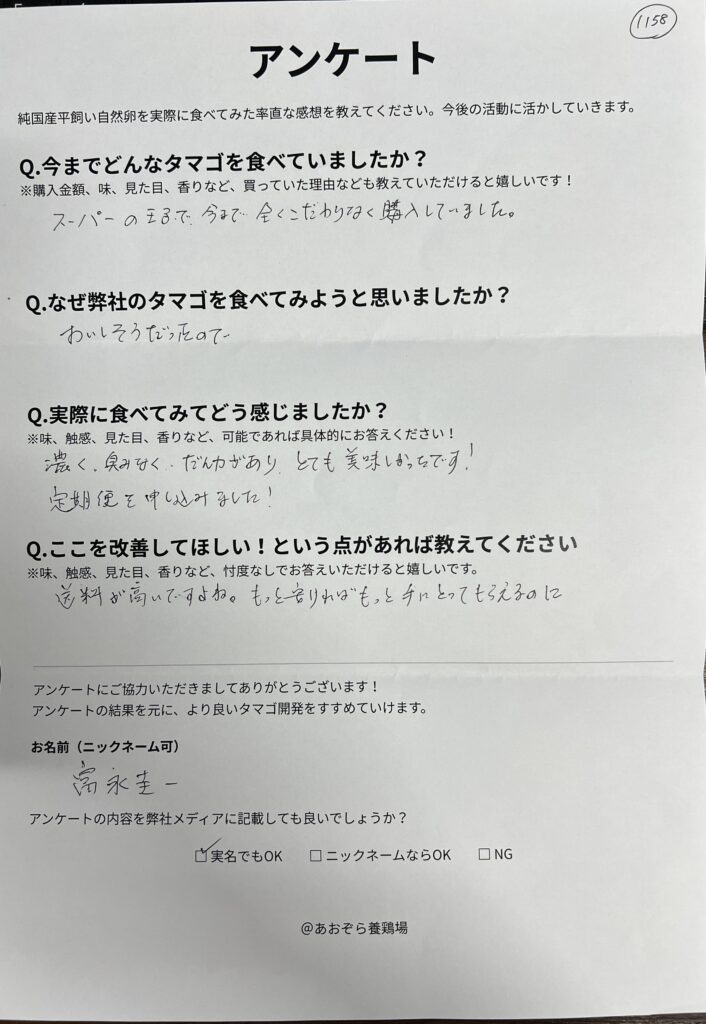 1158
アンケート
純国産平飼い自然卵を実際に食べてみた率直な感想を教えてください。今後の活動に活かしていきます。
Q.今までどんなタマゴを食べていましたか？
※購入金額、味、見た目、香りなど、買っていた理由なども教えていただけると嬉しいです！
スーパーの玉子で、今まで全くこだわりなく購入していました。
Q.なぜ弊社のタマゴを食べてみようと思いましたか？
おいしそうだったので
Q.実際に食べてみてどう感じましたか？
※味、触感、見た目、香りなど、可能であれば具体的にお答えください！
濃く、臭みなく、だん力があり、とても美味しかったです！
定期便を申し込みました！
Q.ここを改善してほしい！という点があれば教えてください
※味、触感、見た目、香りなど、忖度なしでお答えいただけると嬉しいです。
送料が高いですよね。もっと安ければもっと手にとってもらえるのに
アンケートにご協力いただきましてありがとうございます！
アンケートの結果を元に、より良いタマゴ開発をすすめていけます。
お名前（ニックネーム可）
富永圭一
アンケートの内容を弊社メディアに記載しても良いでしょうか？
☑実名でもOK □ニックネームならOK □NG
@あおぞら養鶏場